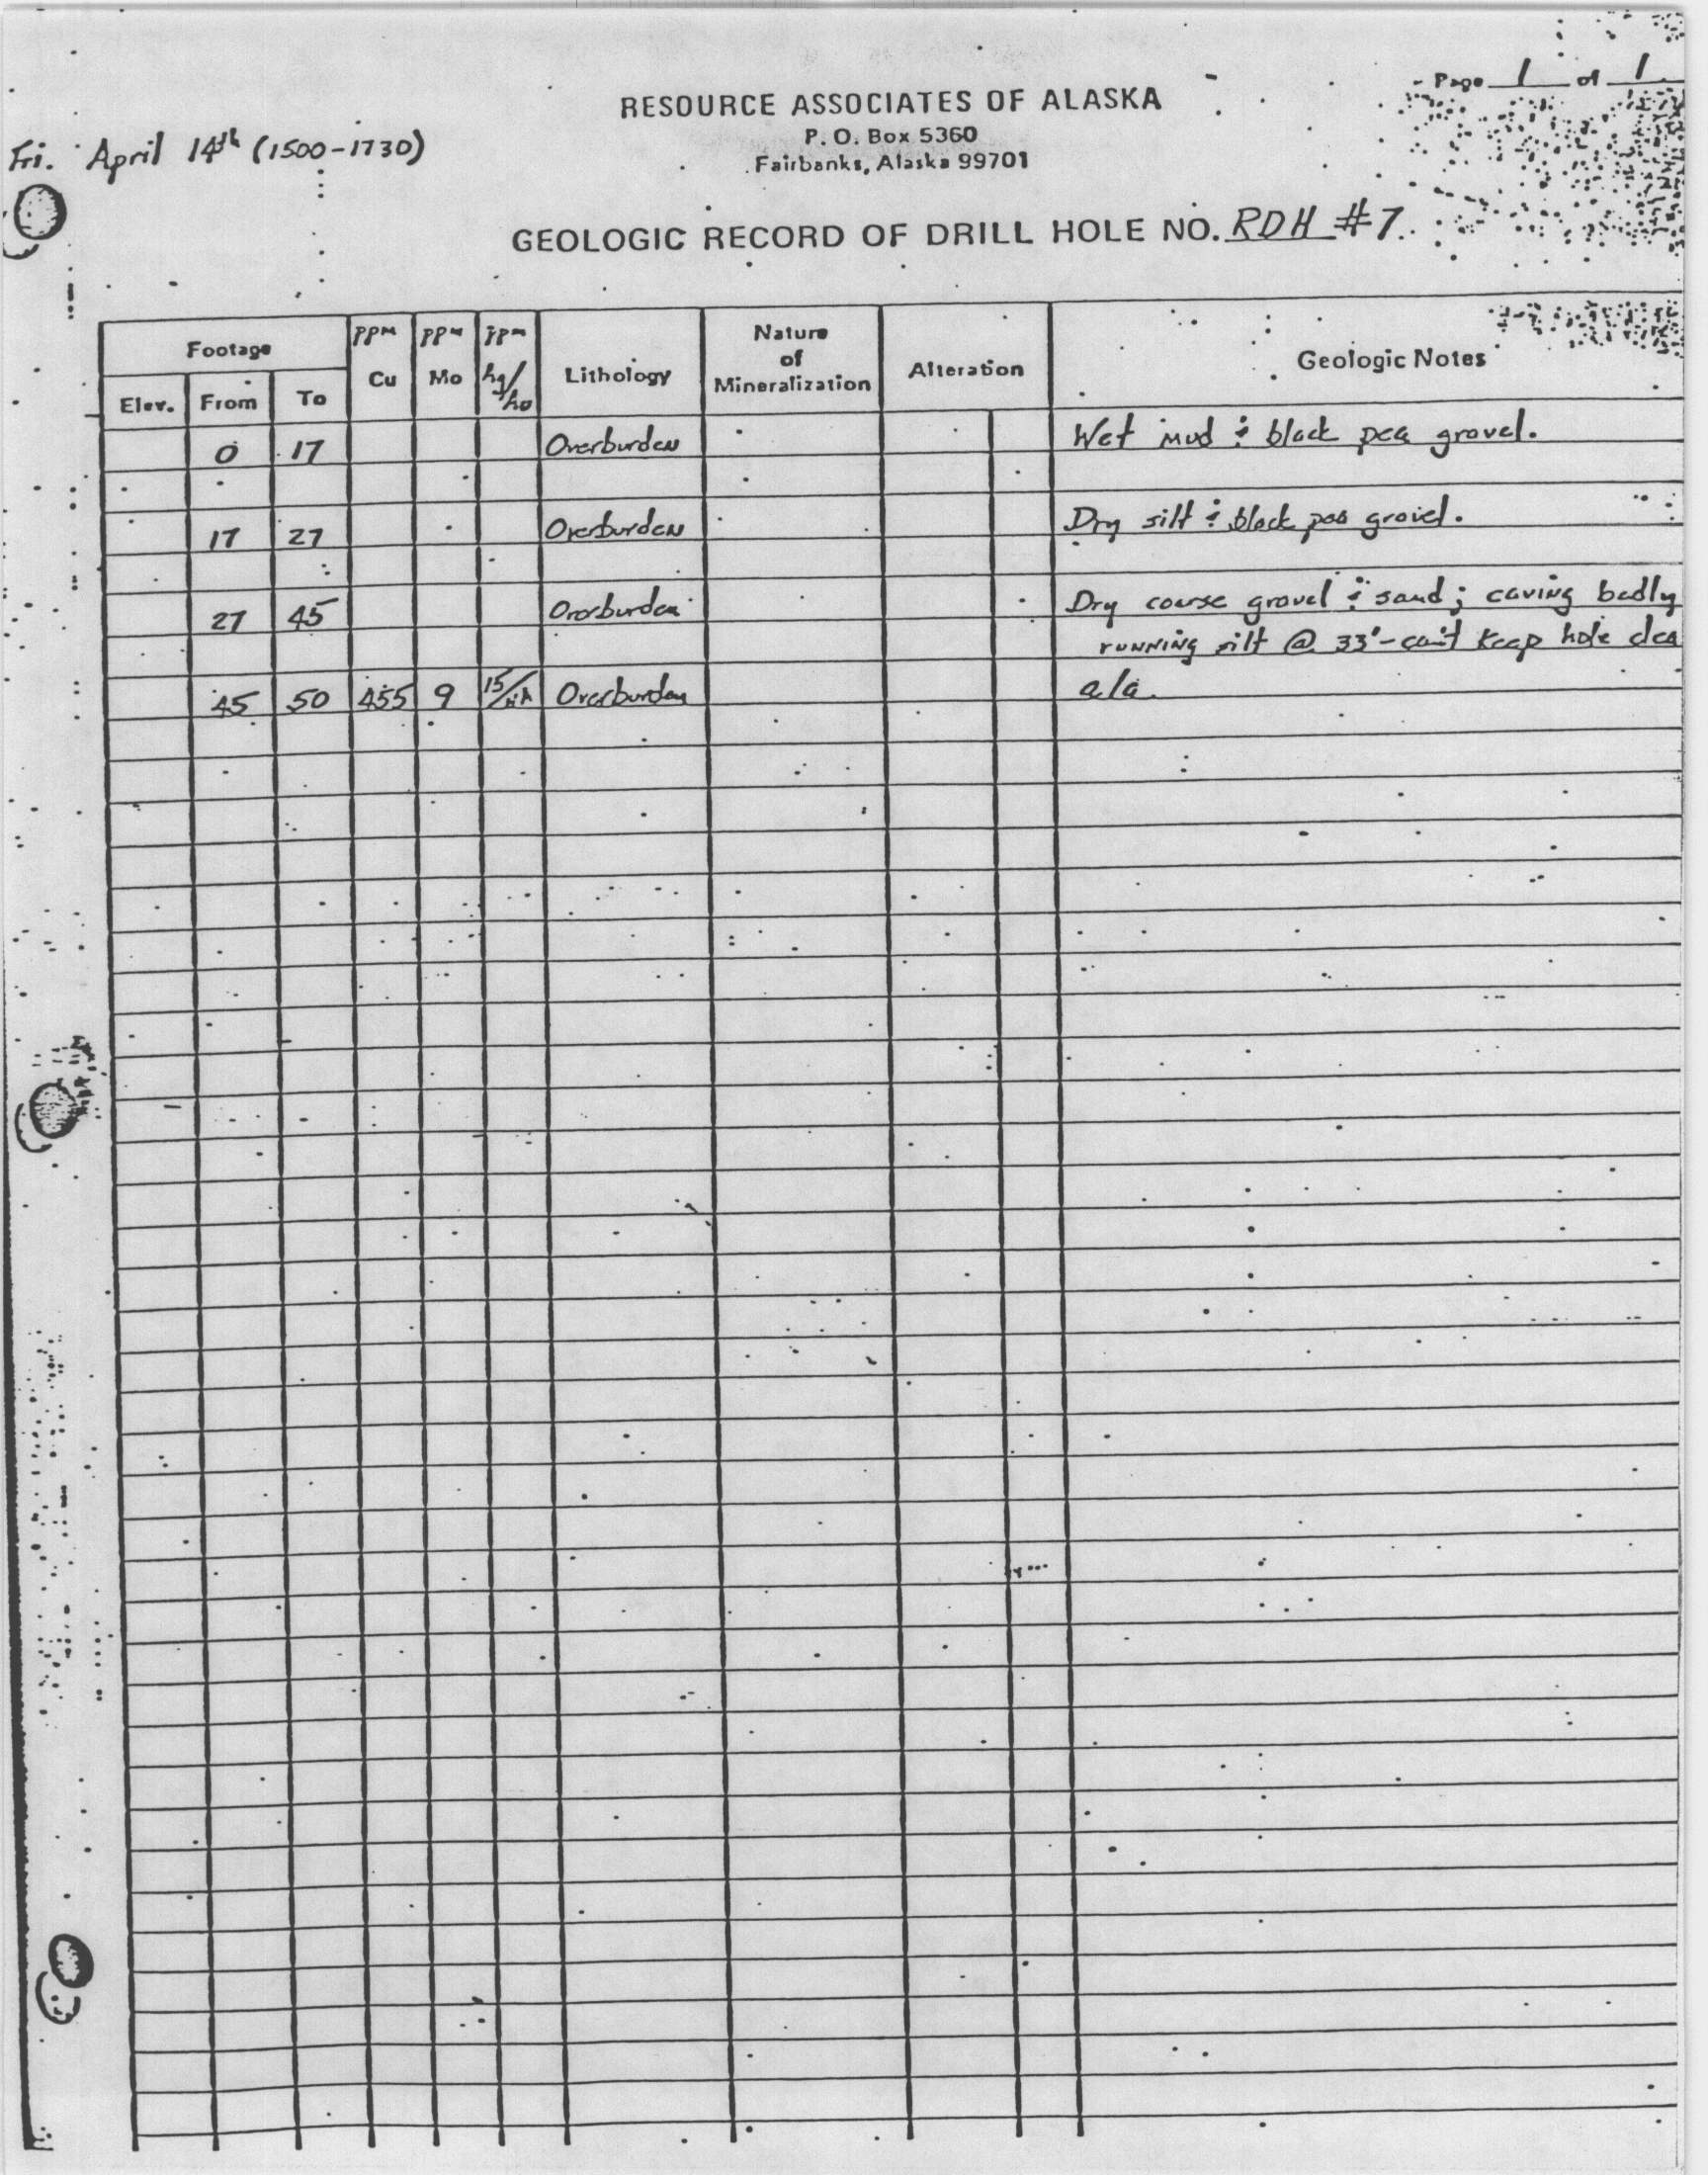 Page 1 of 1
RESOURCE ASSOCIATES OF ALASKA
P. O. Box 5360
Fairbanks, Alaska 99701
Fri. April 14th (1500-1730)
GEOLOGIC RECORD OF DRILL HOLE NO. RDH #7
Footage ppm Cu ppm Mo ppm Lithology Nature of Mineralization Alteration Geologic Notes
Elev. From To
0 17 Overburden Wet mud & black pea gravel.
17 27 Overburden Dry silt & black pea gravel.
27 45 Overburden Dry coarse gravel & sand; caving badly
running silt @ 33'-can't keep hole clea
45 50 455 9 15/NA Overburden a/a.